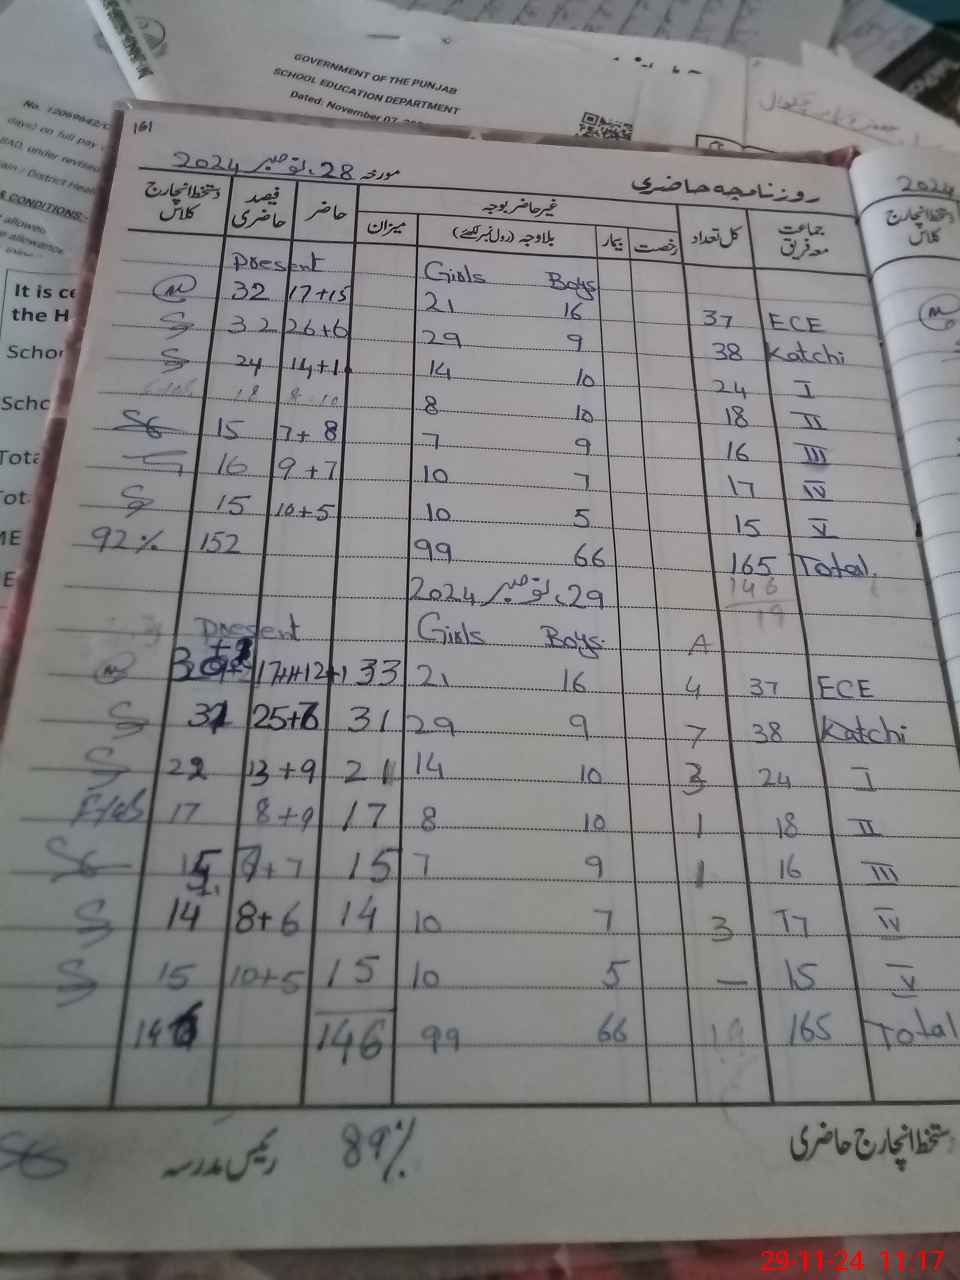 GOVERNMENT OF THE PUNJAB
SCHOOL EDUCATION DEPARTMENT
Dated: November 07,
No.
days) on full pay
under revised
District Heal
CONDITIONS:-
allowed
allowance
It is ce
the H
Schoo
Scho
Tota
Tot
161
روزنامچہ حاضری مورخہ 28 نومبر 2024
جماعت معہ فریق کل تعداد غیر حاضر بوجہ حاضر فیصد حاضری دستخط انچارج کلاس
رخصت بیمار بلاوجہ (رول نمبر لکھئے) میزان
present Girls Boys
32 17+15 21 16 37 ECE
32 26+6 29 9 38 Katchi
24 14+1 14 10 24 I
18 8 10 18 II
15 7+8 7 9 16 III
16 9+7 10 7 17 IV
15 10+5 10 5 15 V
92% 152 99 66 165 Total
146
19
29 نومبر 2024
present Girls Boys A
33 21 16 4 37 ECE
31 29 9 7 38 Katchi
22 13+9 21 14 10 3 24 I
17 8+9 17 8 10 1 18 II
15 +7 15 7 9 1 16 III
14 8+6 14 10 7 3 17 IV
15 10+5 15 10 5 — 15 V
146 146 99 66 19 165 Total
دستخط انچارج حاضری 89% رئیس مدرسہ
2024
دستخط انچارج کلاس
29-11-24 11:17